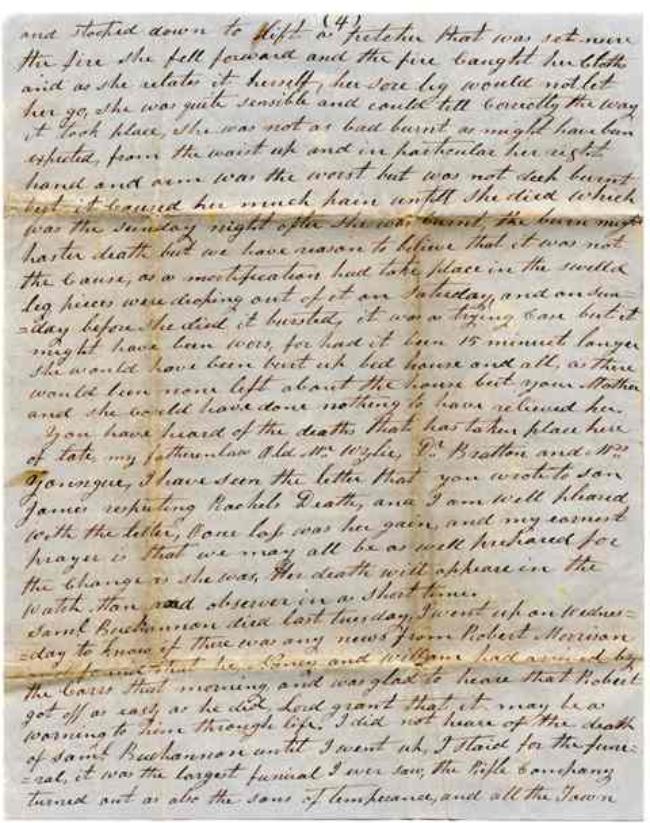 (4)
and stooped down to lift a that was set near
the fire she fell forward and the fire caught her cloths
and as she relates it herself, her sore leg would not let
her go, she was quite sensible and could tell correctly the way
it took place, she was not as bad burnt as might have been
expected, from the waist up and in particular her right
hand and arm was the worst but was not deep burnt
but it caused her much pain untill she died which
was the sunday night after she was burnt, the burn might
hasten death but we have reason to believe that it was not
the cause, as a mortification had take place in the swelld
leg pieces were droping out of it on Saturday, and on sun=
=day before she died it bursted, it was a trying case but it
might have been wors, for had it been 15 minuts longer
she would have been burt up bed house and all, as there
would been none left about the house but your Mother
and she could have done nothing to have relieved her.
You have heard of the deaths that has taken place here
of late, my fatherinlaw Old Mr Wylie, Dr Bratton and
Youngue, I have seen the letter that you wrote to son
James respecting Rachels Death, and I am well pleased
with the letter, loss was her gain, and my earnest
prayer is that we may all be as well prepared for
the change as she was, Her death will appeare in the
watch man and observer in a short time.
Saml Buchannon died last tuesday, I went up on Wednes=
=day to know if there was any news from Robert Morrison
and found that he and william had arrived by
the Carrs that morning and was glad to heare that Robert
got off as easy as he did, Lord grant that it may be a
warning to him through life. I did not heare of the death
of saml Buchannon until I went up, I staid for the fune=
=ral, it was the largest funeral I ever saw, the Rifle Company
turned out as also the sons of temperance, and all the Town